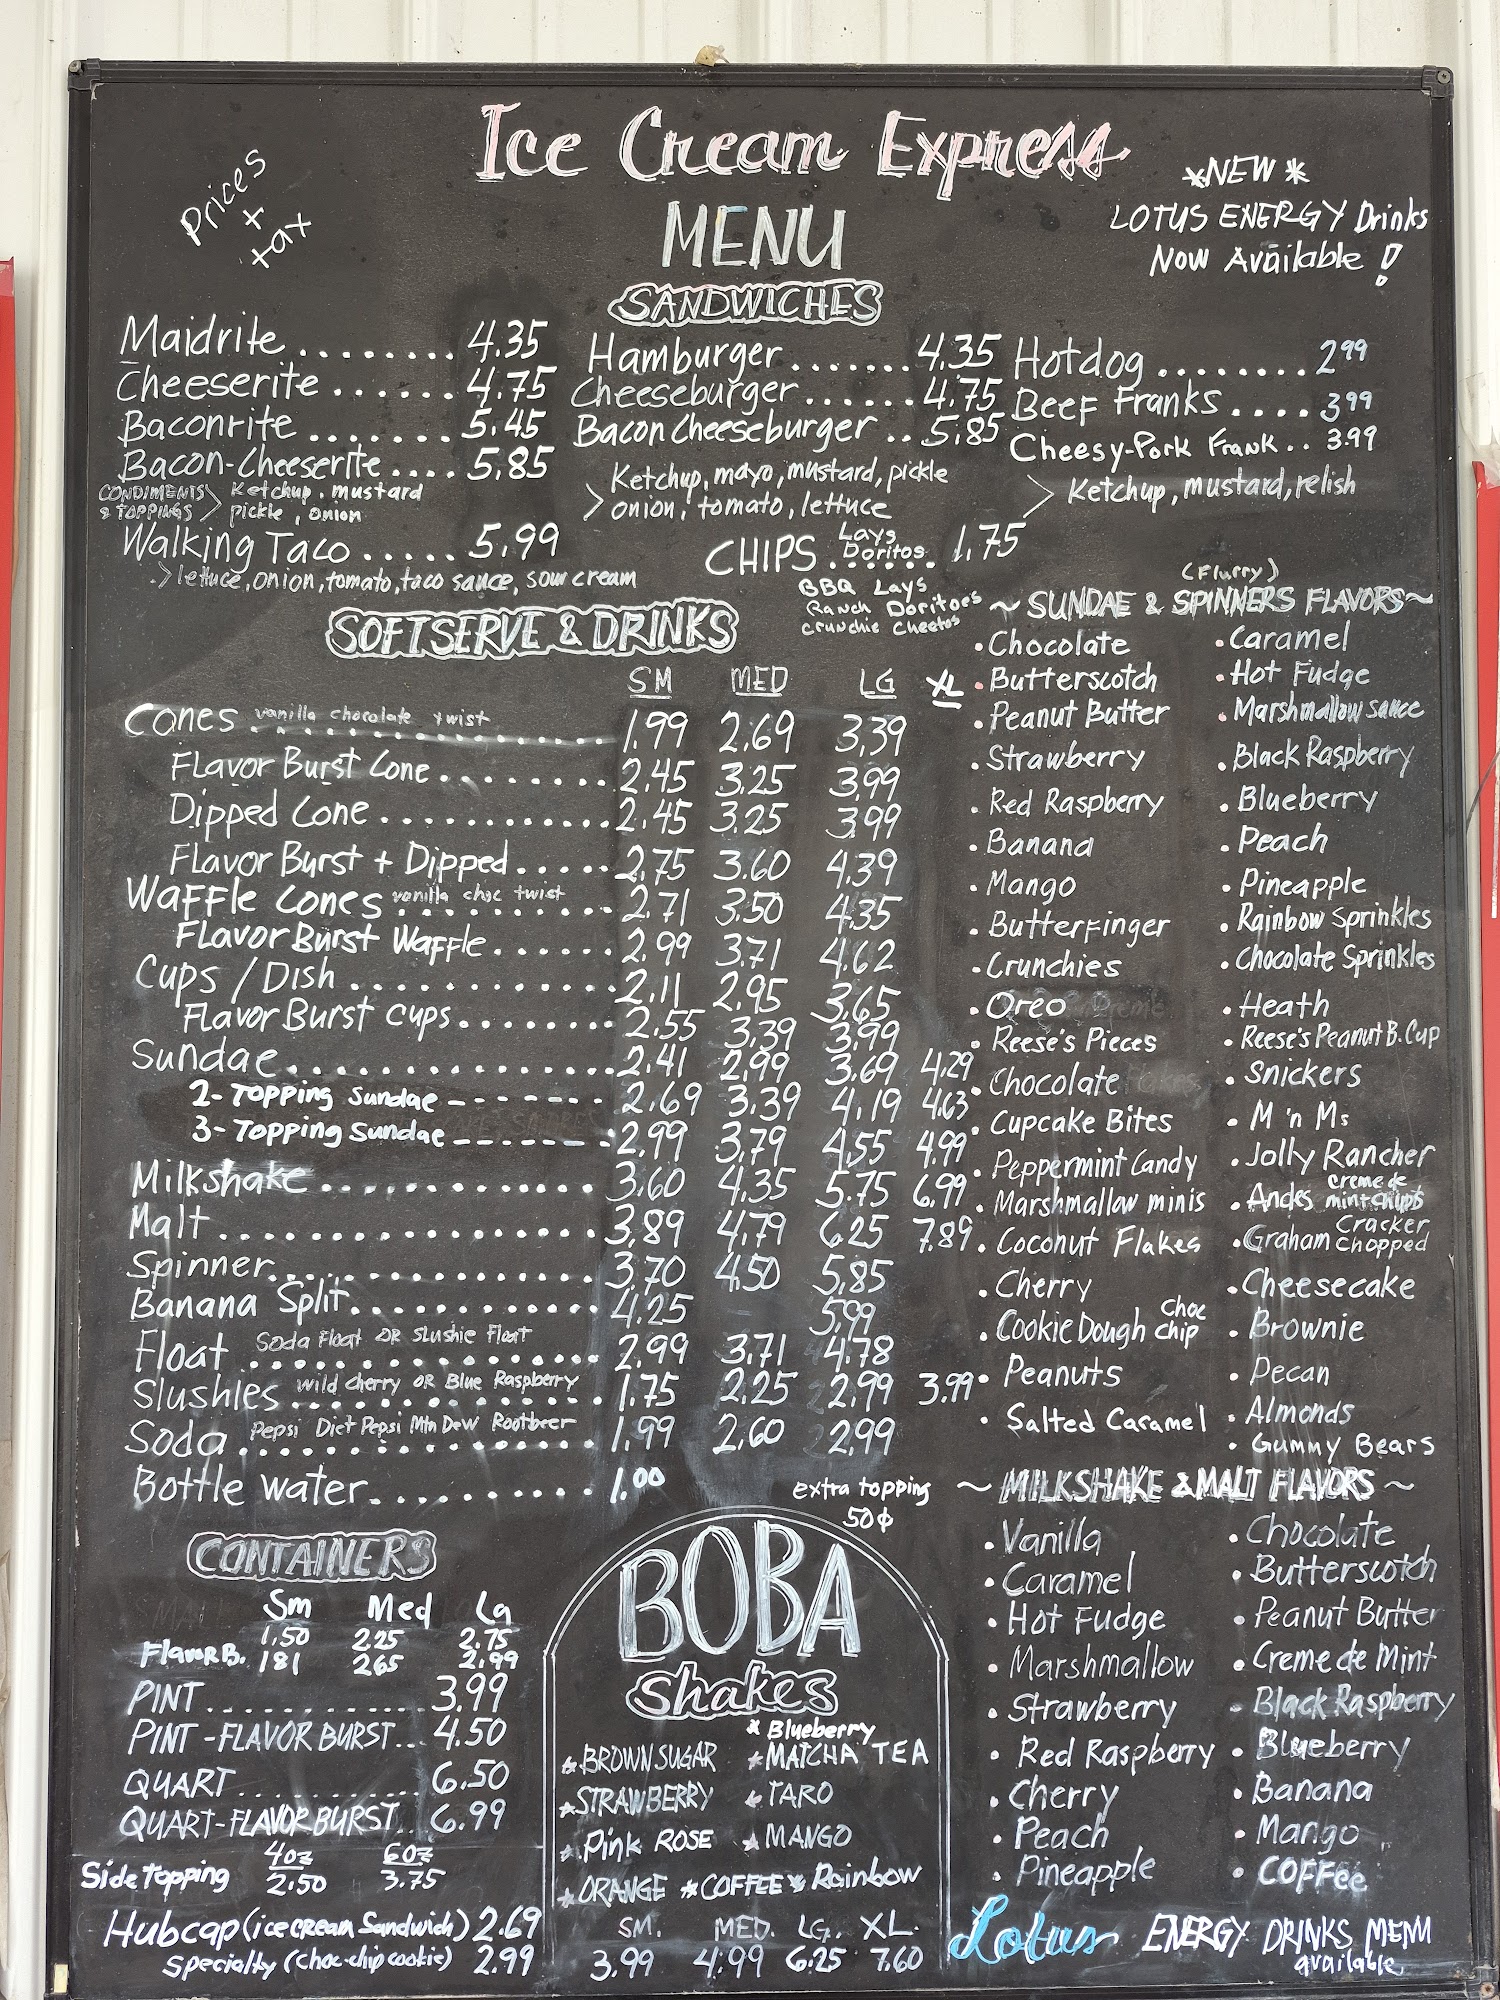 Ice Cream Express
Prices
+
tax
*NEW*
LOTUS ENERGY Drinks
Now Available!
MENU
SANDWICHES
Maidrite ........ 4.35
Cheeserite ...... 4.75
Baconrite ....... 5.45
Bacon-Cheeserite .... 5.85
CONDIMENTS & TOPPINGS > Ketchup, mustard
pickle, onion
Walking Taco ..... 5.99
> lettuce, onion, tomato, taco sauce, sour cream
Hamburger ....... 4.35
Cheeseburger ...... 4.75
Bacon Cheeseburger .. 5.85
> Ketchup, mayo, mustard, pickle
onion, tomato, lettuce
Hotdog ........ 2.99
Beef Franks .... 3.99
Cheesy-Pork Frank .. 3.99
> Ketchup, mustard, relish
CHIPS ...... 1.75
Lays
Doritos
BBQ Lays
Ranch Doritoes
Crunchie Cheetos
SOFTSERVE & DRINKS
SM MED LG XL
Cones vanilla chocolate twist 1.99 2.69 3.39
Flavor Burst Cone ........ 2.45 3.25 3.99
Dipped Cone ............ 2.45 3.25 3.99
Flavor Burst + Dipped ..... 2.75 3.60 4.39
Waffle Cones vanilla choc twist 2.71 3.50 4.35
Flavor Burst Waffle ...... 2.99 3.71 4.62
Cups / Dish ............ 2.11 2.95 3.65
Flavor Burst cups ........ 2.55 3.39 3.99
Sundae ................ 2.41 2.99 3.69 4.29
2-Topping Sundae -------- 2.69 3.39 4.19 4.63
3-Topping Sundae -------- 2.99 3.79 4.55 4.99
Milkshake .............. 3.60 4.35 5.75 6.99
Malt .................. 3.89 4.79 6.25 7.89
Spinner ................ 3.70 4.50 5.85
Banana Split ............ 4.25 5.99
Float Soda Float OR Slushie Float 2.99 3.71 4.78
Slushies Wild Cherry OR Blue Raspberry 1.75 2.25 2.99 3.99
Soda Pepsi Diet Pepsi Mtn Dew Rootbeer 1.99 2.60 2.99
Bottle Water ........... 1.00
extra topping
50¢
(Flurry)
~ SUNDAE & SPINNERS FLAVORS ~
• Chocolate
• Butterscotch
• Peanut Butter
• Strawberry
• Red Raspberry
• Banana
• Mango
• Butterfinger
• Crunchies
• Oreo
• Reese's Pieces
• Chocolate
• Cupcake Bites
• Peppermint Candy
• Marshmallow minis
• Coconut Flakes
• Cherry
• Cookie Dough choc chip
• Peanuts
• Salted Caramel
• Caramel
• Hot Fudge
• Marshmallow sauce
• Black Raspberry
• Blueberry
• Peach
• Pineapple
• Rainbow Sprinkles
• Chocolate Sprinkles
• Heath
• Reese's Peanut B. Cup
• Snickers
• M 'n Ms
• Jolly Rancher
• Andes creme de mint chips
• Graham Cracker Chopped
• Cheesecake
• Brownie
• Pecan
• Almonds
• Gummy Bears
~ MILKSHAKE & MALT FLAVORS ~
• Vanilla
• Caramel
• Hot Fudge
• Marshmallow
• Strawberry
• Red Raspberry
• Cherry
• Peach
• Pineapple
• Chocolate
• Butterscotch
• Peanut Butter
• Creme de Mint
• Black Raspberry
• Blueberry
• Banana
• Mango
• COFFee
CONTAINERS
Sm Med Lg
1.50 225 2.75
FlavorB. 181 265 2.99
PINT ............. 3.99
PINT - FLAVOR BURST ... 4.50
QUART ........... 6.50
QUART-FLAVOR BURST .. 6.99
4oz 6oz
Side Topping 2.50 3.75
Hubcap (ice cream Sandwich) 2.69
Specialty (choc-chip cookie) 2.99
BOBA
Shakes
* Blueberry
* BROWN SUGAR * MATCHA TEA
* STRAWBERRY * TARO
* Pink ROSE * MANGO
* ORANGE * COFFEE * Rainbow
SM. MED. LG. XL.
3.99 4.99 6.25 7.60
Lotus ENERGY DRINKS MENU
available